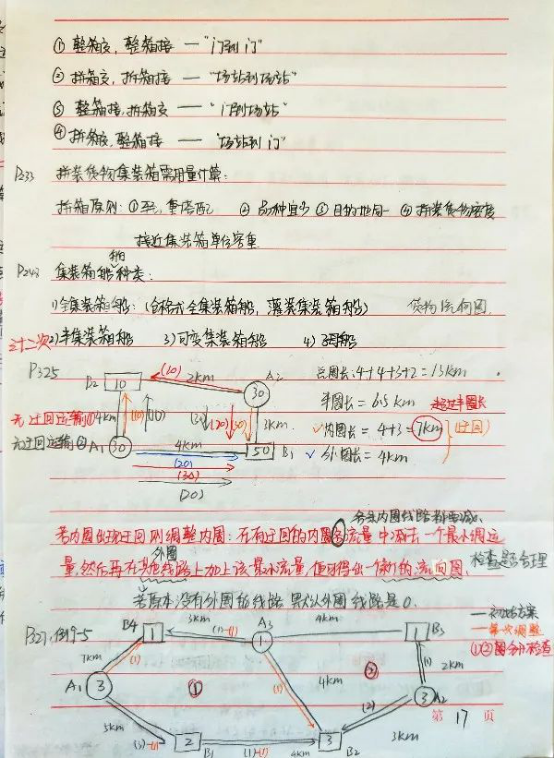 ① 整箱交，整箱接 — "门到门"
② 拼箱交，拆箱接 — "场站到场站"
③ 整箱接，拆箱交 — "门到场站"
④ 拼箱交，整箱接 — "场站到门"
P233 拼装货物集装箱需用量计算：
拼箱原则：① 轻、重搭配 ② 品种宜少 ③ 目的地同一 ④ 拼装货物密度
接近集装箱单位容重
P243 集装箱船种类：
1) 全集装箱船：(舱格式全集装箱船，滚装集装箱船) 货物流向图.
2) 半集装箱船 3) 可变集装箱船 4) 子母船
P325
B2 10 (10) 2km A2 30
总圈长：4+4+3+2=13km
半圈长= 6.5 km 超过半圈长
内圈长= 4+3=7km (迂回)
外圈长= 4km
无迂回运输① 4km
无迂回运输②
A1 30 4km 50 B1
3km
(20)
(30)
(20)
各条内圈线路都要减.
若内圈出现迂回则调整内圈：在有迂回的内圈各流量中减去一个最小调运
外圈
量，然后再在其他线路上加上该最小流量，便可得出一个新的流向图. 检查是否合理
若原本没有外圈的线路默认外圈线路是0.
P327.例9-5
初始方案
第一次调整
①②圈分别检查
B4 1 3km A3 1 4km 1 B3
7km 4km 2km
A1 3 ① ② 3 A2
5km 2 B1 4km 3 B2 (2) 3km
第 17 页